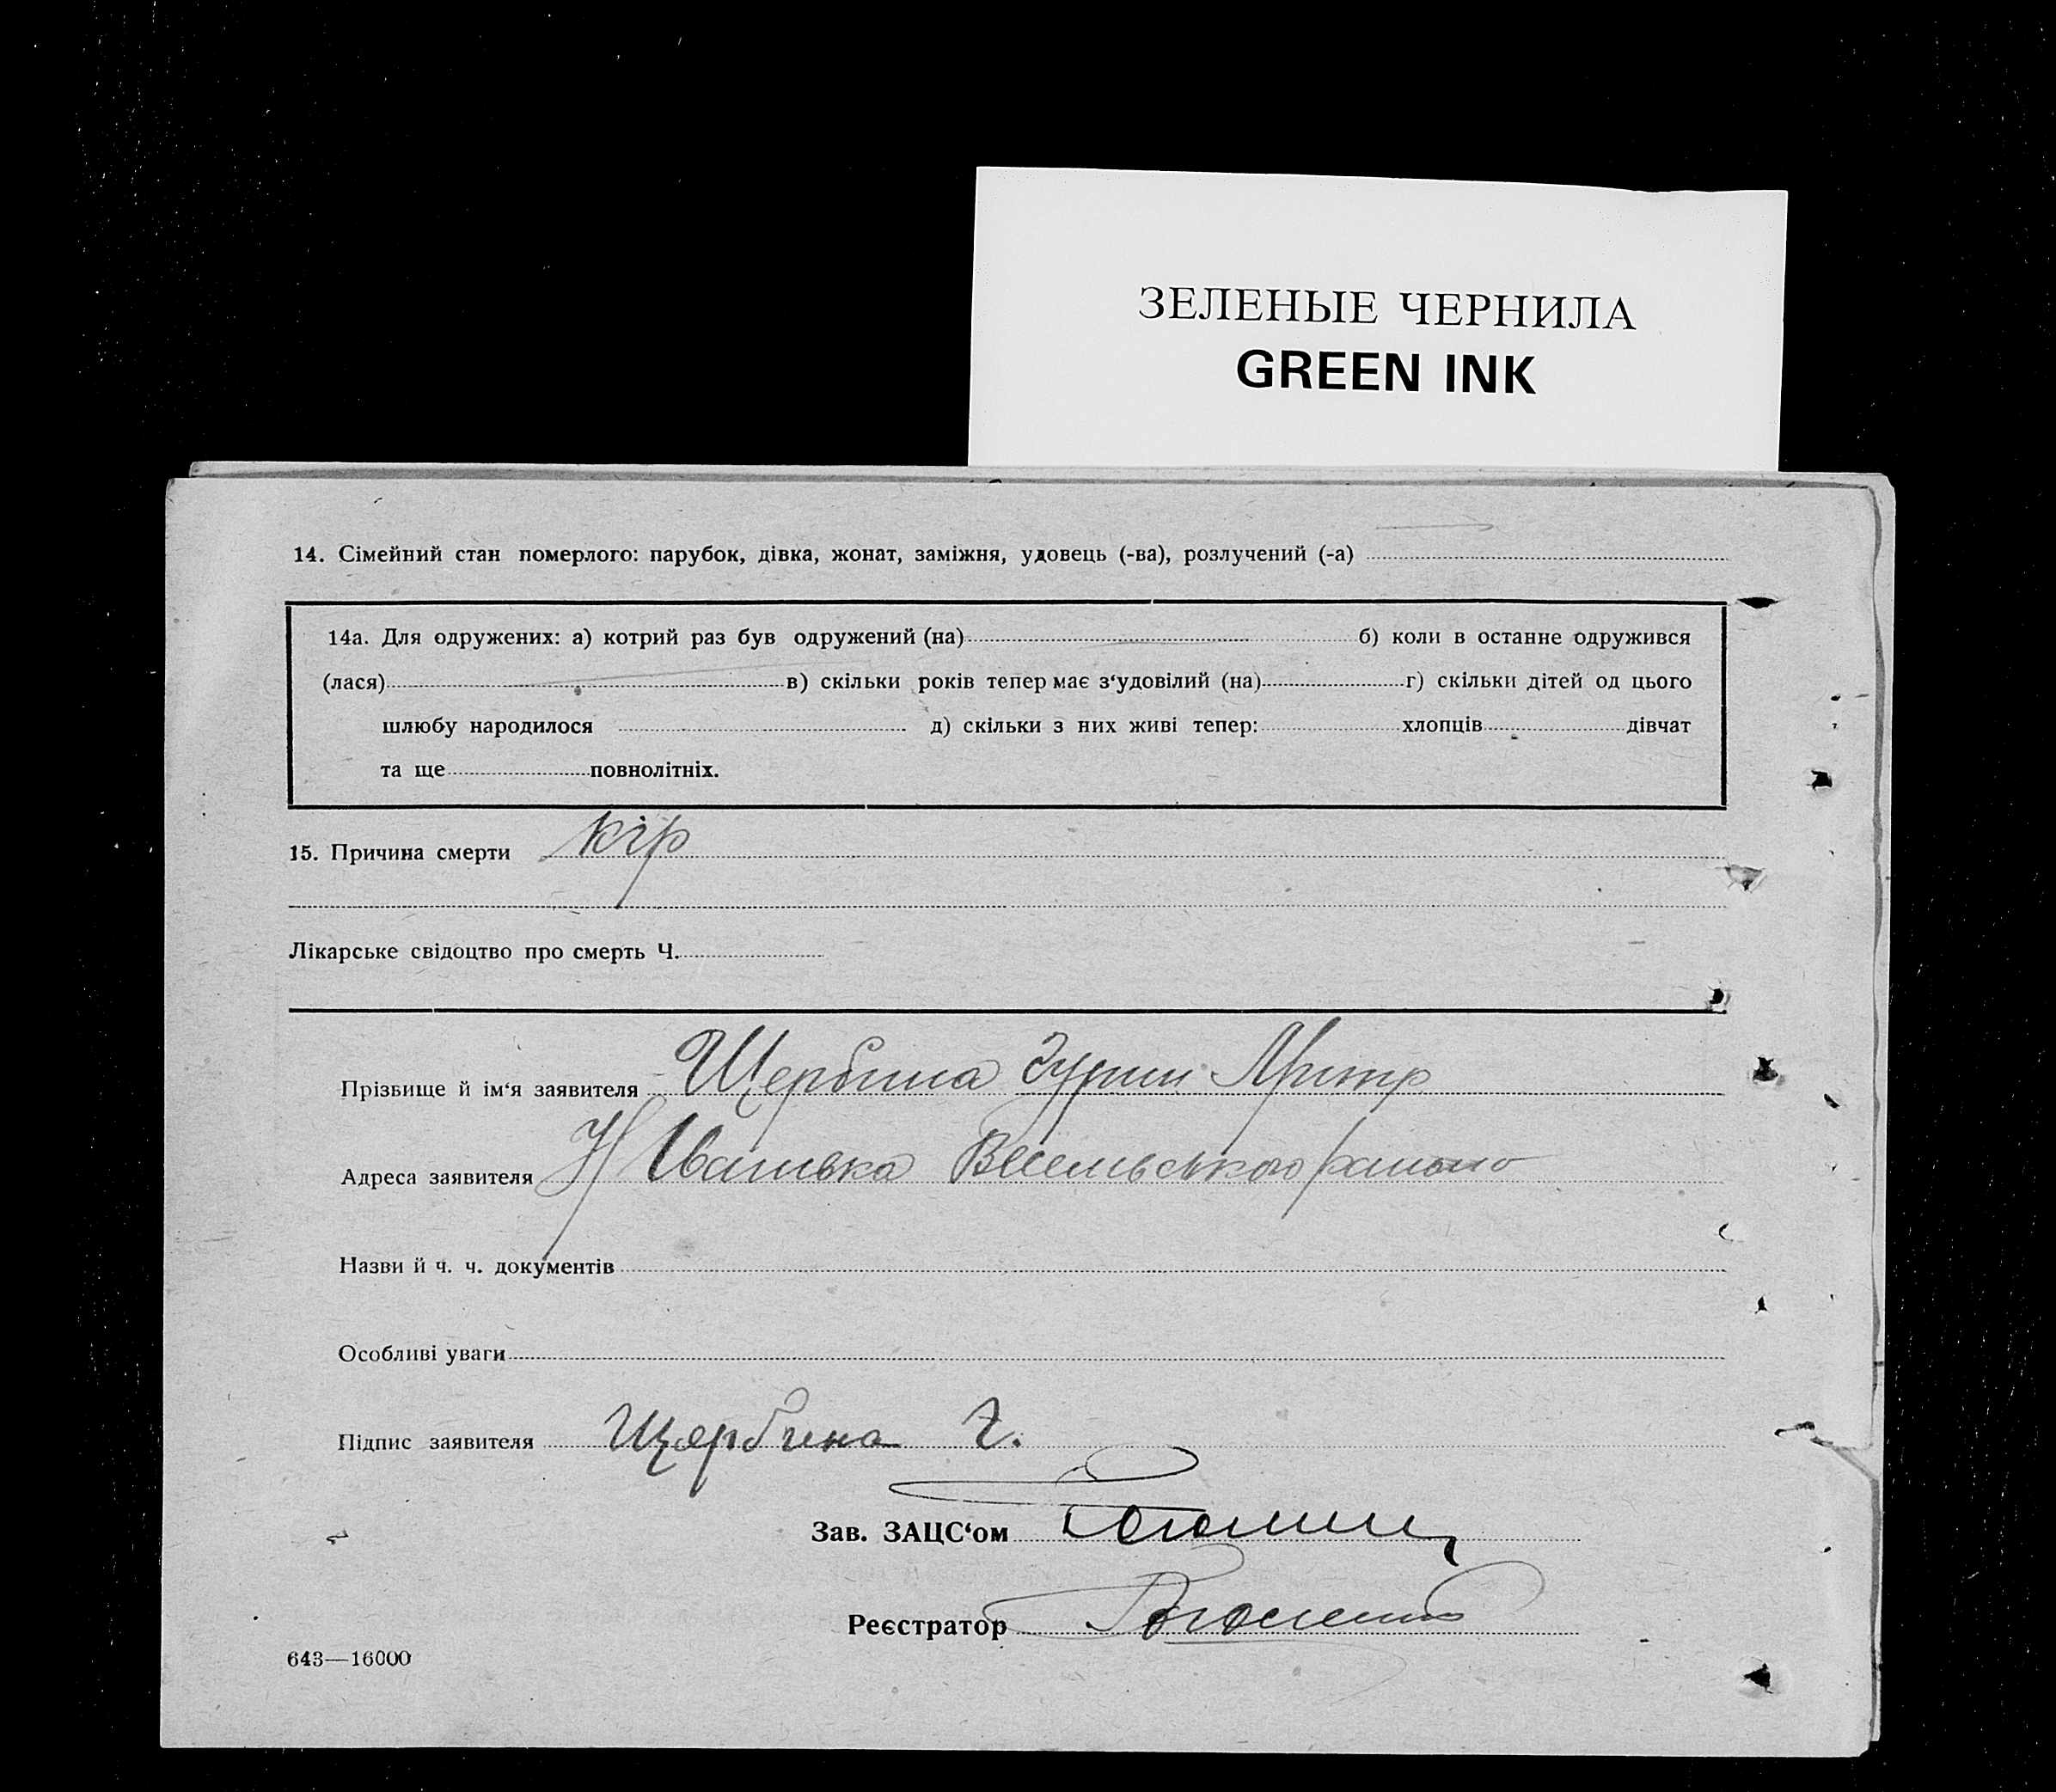 ЗЕЛЕНЫЕ ЧЕРНИЛА
GREEN INK
14. Сімейний стан померлого: парубок, дівка, жонат, заміжня, удовець (-ва), розлучений (-а)
14а. Для одружених: а) котрий раз був одружений (на) б) коли в останне одружився
(лася) в) скільки років тепер має з‘удовілий (на) г) скільки дітей од цього
шлюбу народилося д) скільки з них живі тепер: хлопців дівчат
та ще повнолітніх.
15. Причина смерти кір
Лікарське свідоцтво про смерть Ч.
Прізвище й ім‘я заявителя Щербина
Адреса заявителя Іванівка
Назви й ч. ч. документів
Особливі уваги
Підпис заявителя Щербина
Зав. ЗАЦС‘ом
Реєстратор
643—16000